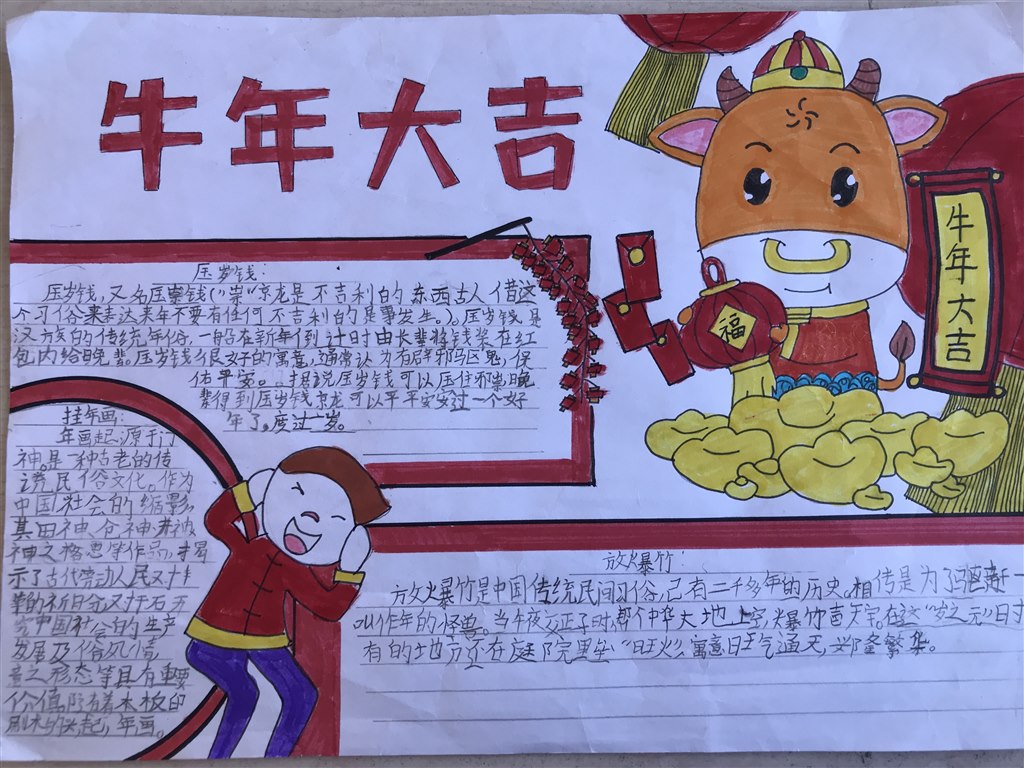 牛年大吉
牛年大吉
福
压岁钱:
压岁钱,又名压祟钱("祟"
是不吉利的东西古人借这
个习俗来表达来年不要有任何不吉利的是事发生。)。压岁钱是
汉族的传统年俗,一般在新年倒计时由长辈将钱装在红
包内给晚辈。压岁钱有很好的寓意,通常认为有辟邪驱鬼,保
佑平安。
压岁钱可以压住邪祟晚
辈得到压岁钱
可以平平安安过一个好
年了。度过一岁。
挂年画:
年画起源于门
神。是一种古老的传
统民俗文化。作为
中国社会的缩影,
其田神、谷神
神之
等作品,揭
示了古代劳动人民
的生产
发展及俗
形态等具有重要
价值,随着木板的
年画。
放火暴竹:
放火暴竹是中国传统民间习俗,已有二千多年的历史。相传是为了驱赶一
叫作年的怪兽。当午夜
中华大地上空,火暴竹
在这"岁之元"日
有的地方还在庭院里垒"旺火",寓意旺气通天,兴隆繁华。